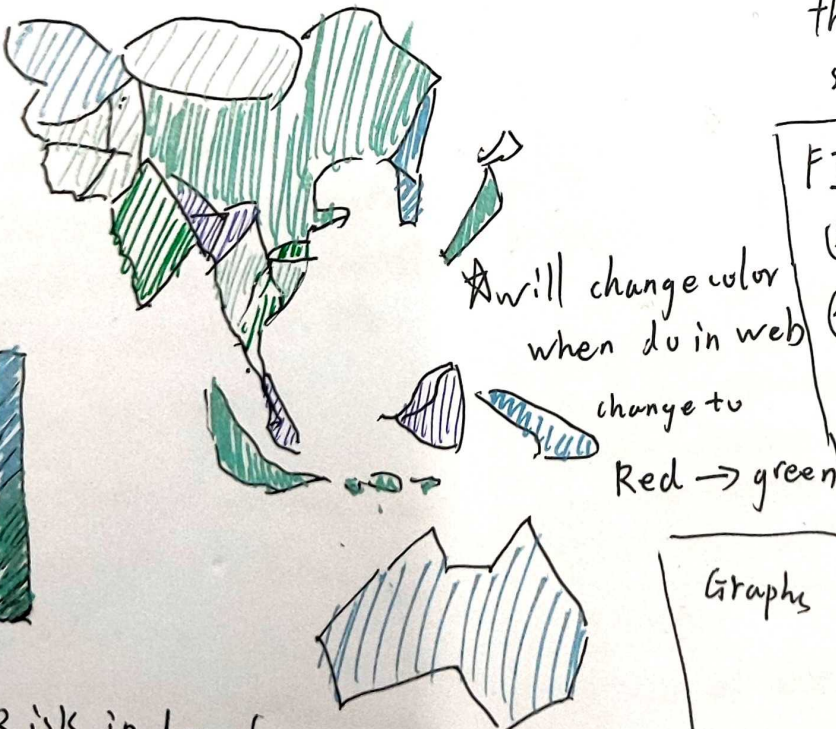 th
☆will change color
when do in web
change to
Red → green
Graphs